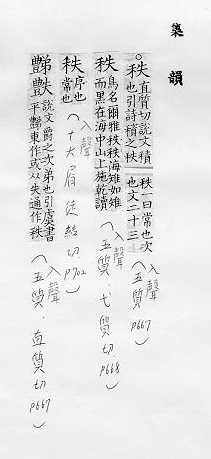 集韻
。秩 直質切說文積也引詩積之秩秩一曰常也次也文二十三(入聲 五質 P667)
秩 鳥名爾雅秩秩海雉如雉而黑在海中山上施乾讀(入聲 五質.弋質切 P668)
秩 序也常也(入聲 十六屑 徒結切 P702)
豑 說文爵之次弟也引虞書平豑東作或从失通作秩(入聲 五質.直質切 P667)